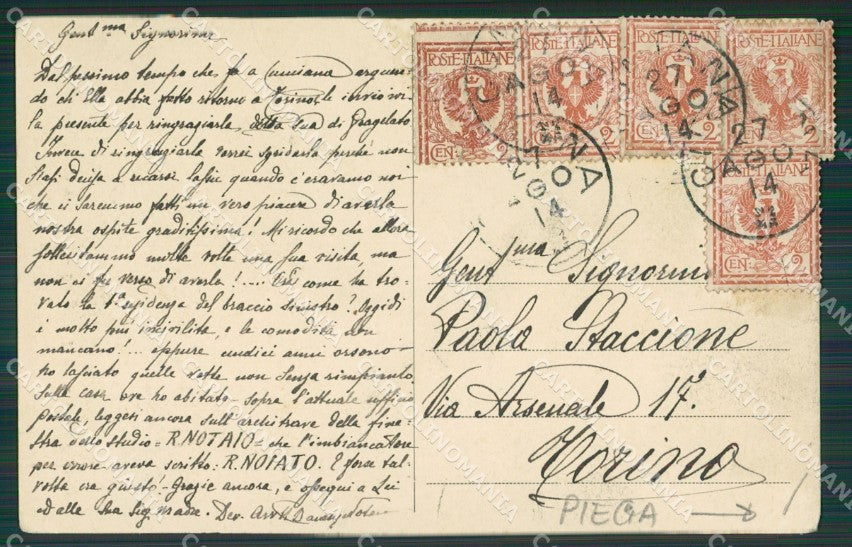 Gent.ma Signorina
Dal pessimo tempo che fa a Cumiana arguen
do ch'Ella abbia fatto ritorno a Torino, le invio vi
la presente per ringraziarla, della Sua di Fragelato
Invece di ringraziarla vorrei sgridarla perché non
siasi decisa a recarsi lassù quando c'eravamo noi
che ci saremmo fatti un vero piacere di averla
nostra ospite graditissima! Mi ricordo che allora
sollecitammo molte volte una sua visita, ma
non ci fu verso di averla! .... Ed come ha tro-
vato la 1ª residenza del braccio sinistro? Oggidì
è molto più incivilita, e le comodità non
mancano! ... eppure undici anni orsono
ho lasciato quelle vette non senza rimpianto
Sulla casa ove ho abitato - sopra l'attuale ufficio
postale, leggesi ancora sull'architrave della fine
stra dello studio = R. NOTAIO = che l'imbiancatore
per errore aveva scritto: R. NOIATO. E forse tal-
volta era giusto! - Grazie ancora, e ossequi a Lei
ed alla Sua Sig. madre. Dev.
POSTE ITALIANE
POSTE ITALIANE
POSTE ITALIANE
POSTE ITALIANE
CEN. 2
2
2
2
CEN. 2
27
AGO
14
27
AGO
14
27
AGO
14
14
Gent.ma Signorina
Paola Staccione
Via Arsenale 17.
Torino
PIEGA →
CARTOLINOMANIA